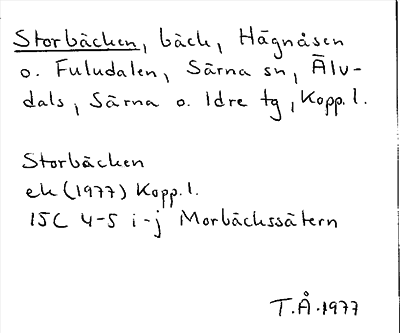 Storbäcken, bäck, Hägnåsen
o. Fuludalen, Särna sn, Älv-
dals, Särna o. Idre tg, Kopp. l.
Storbäcken
ek (1977) Kopp. l.
15C 4-5 i-j Morbäckssätern
T.Å. 1977